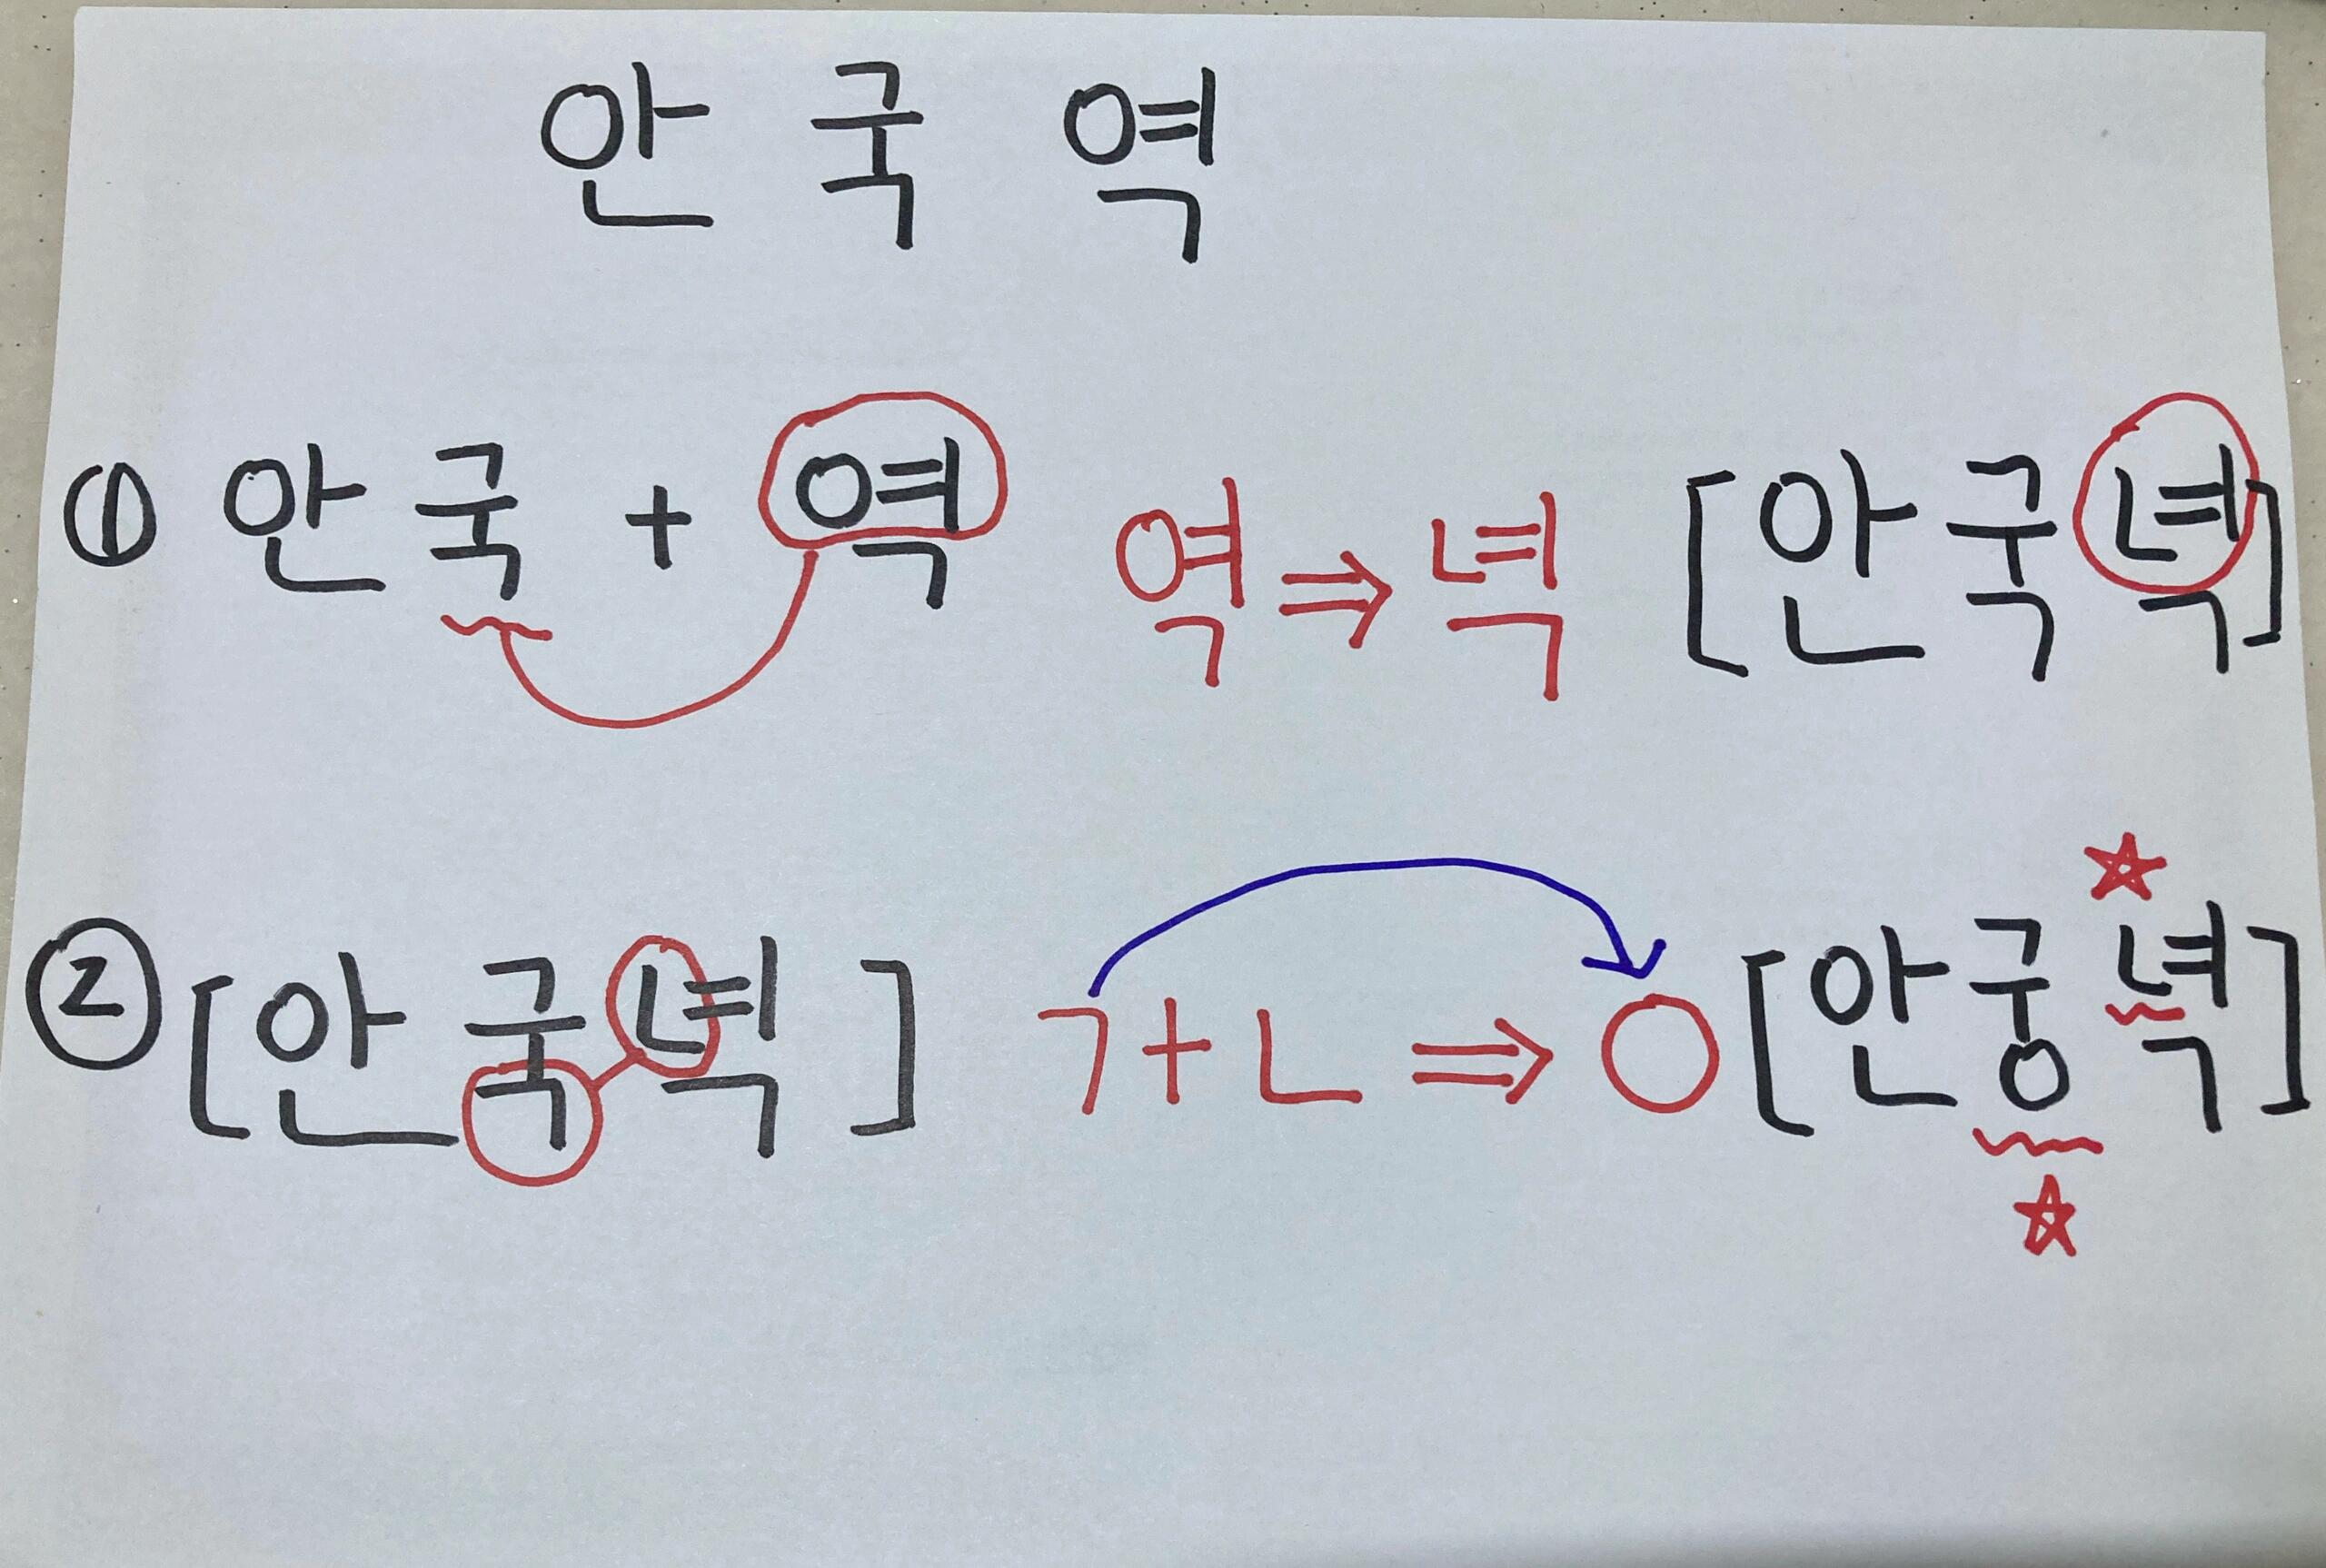 안국역
① 안국 + 역 역 ⇒ 녁 [안국녁]
② [안국녁] ㄱ+ㄴ ⇒ ㅇ [안궁녁]